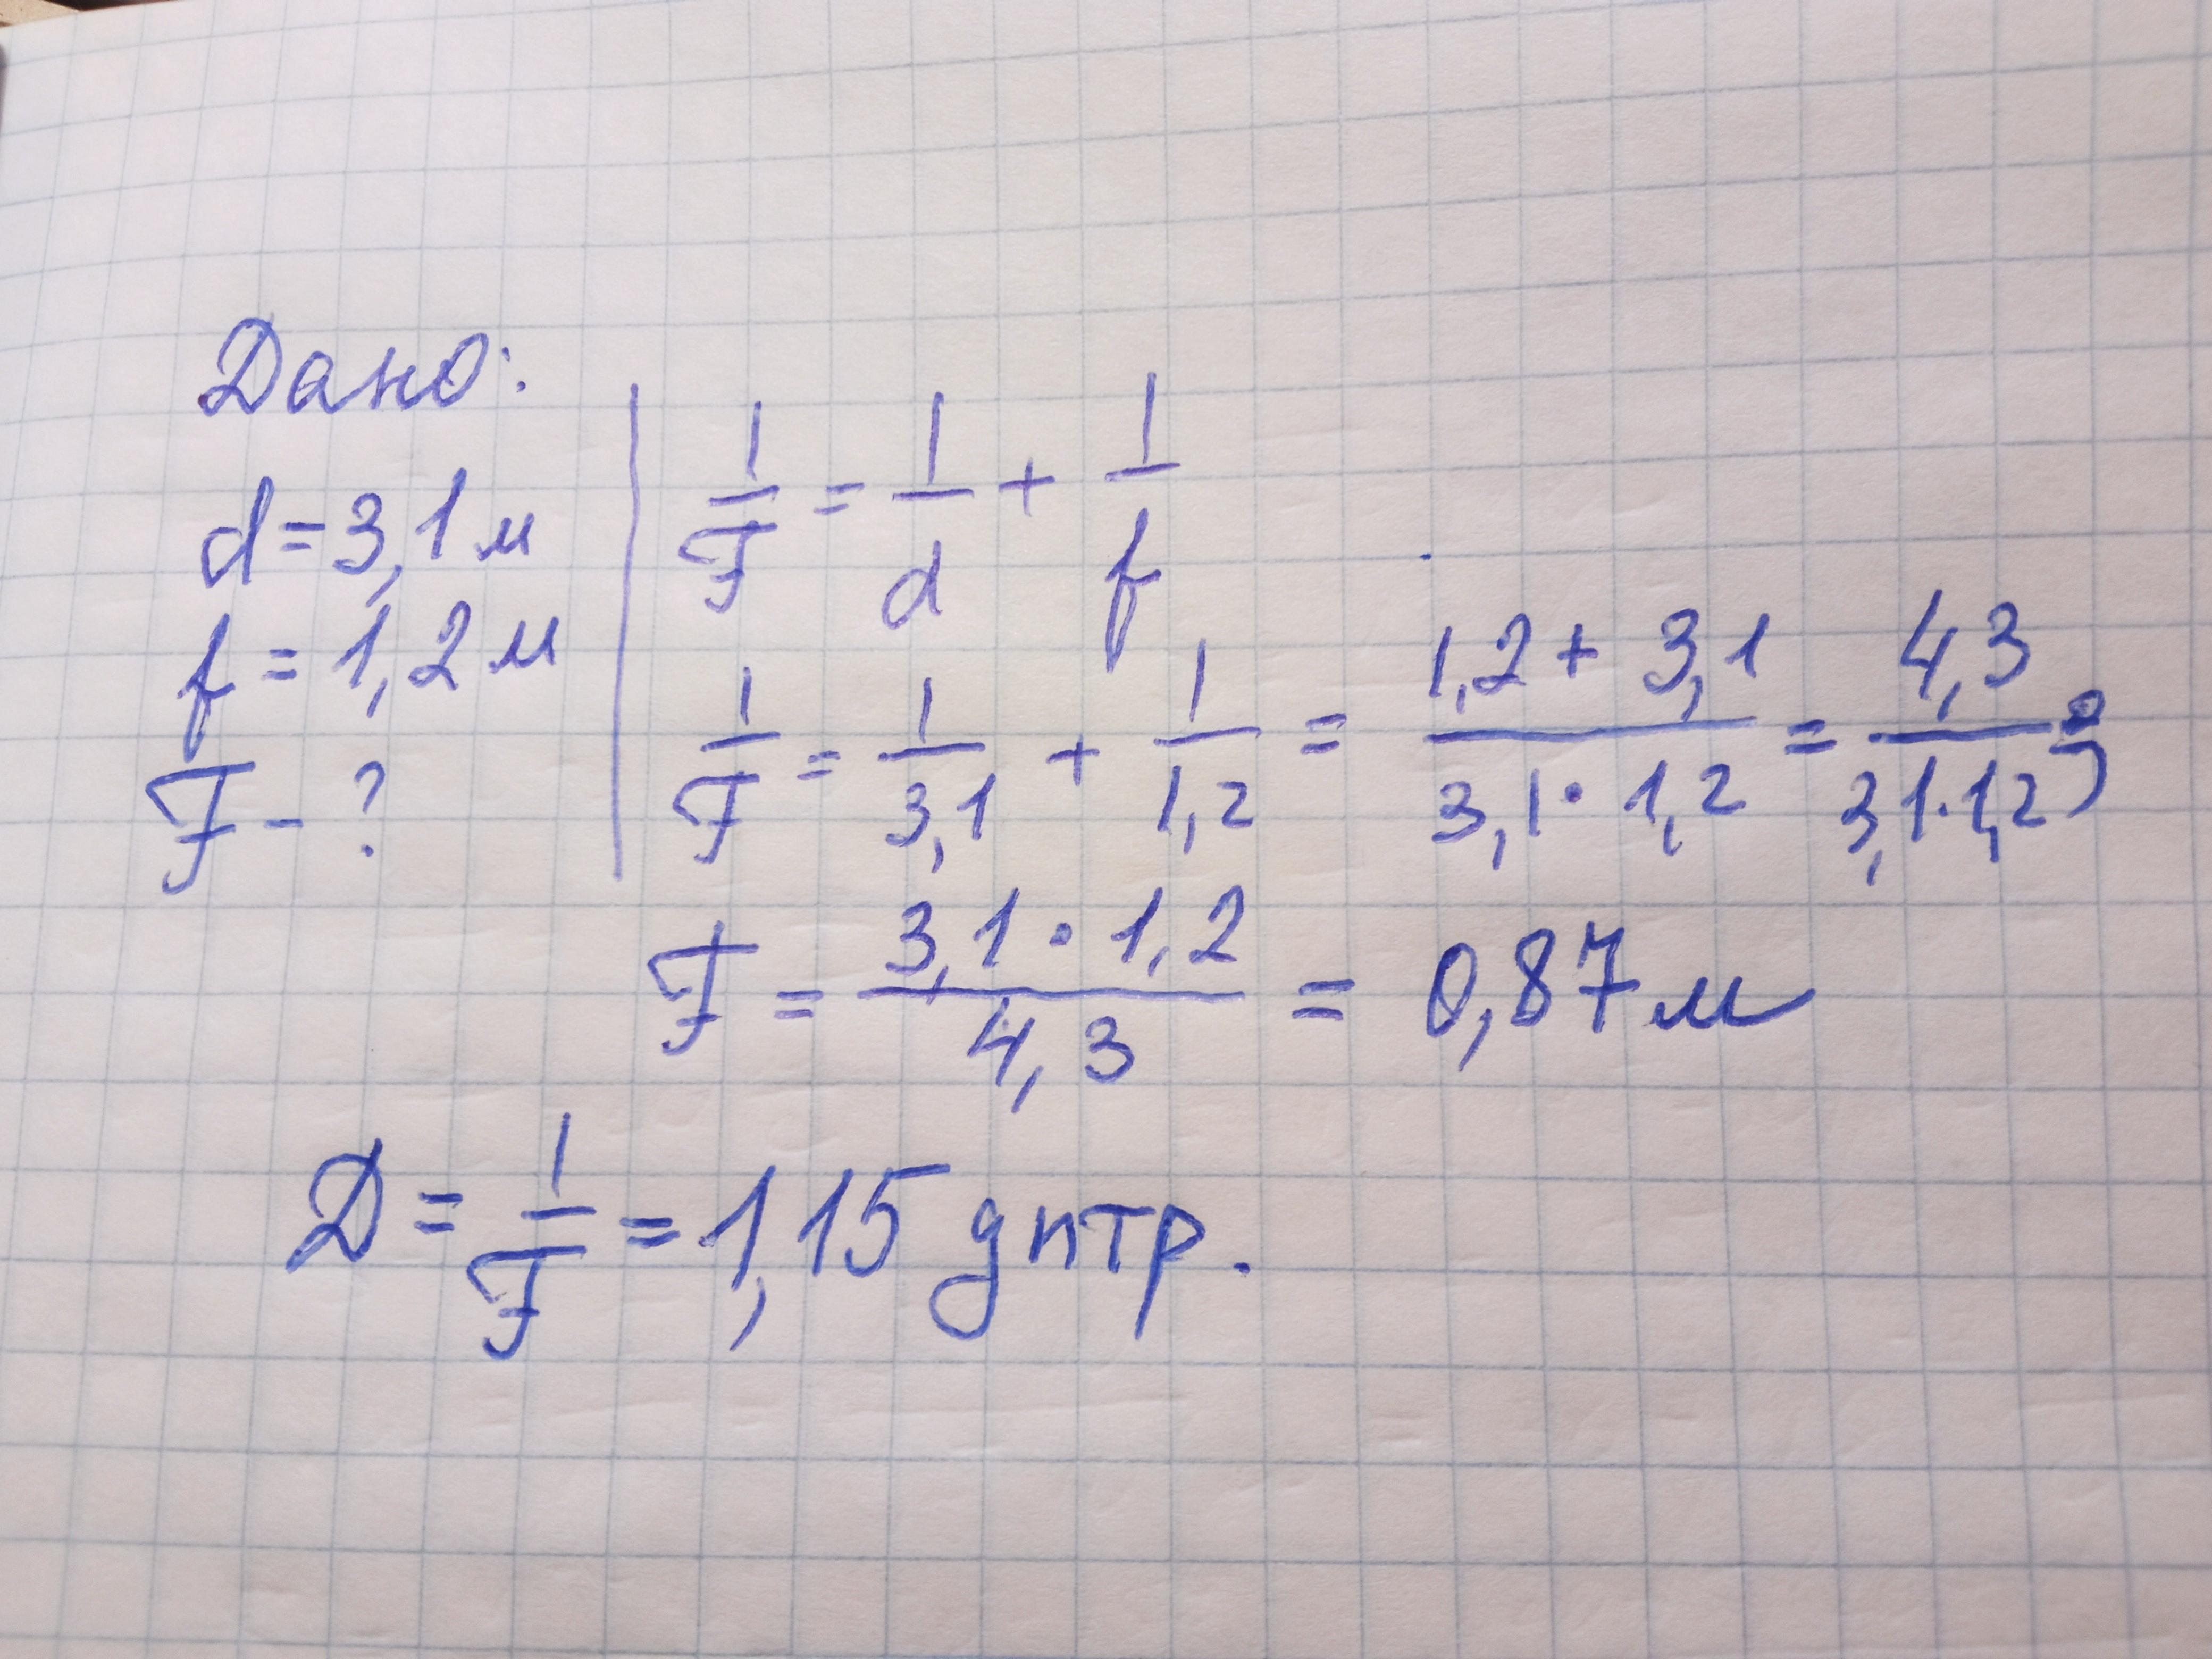 Дано:
d = 3,1 м
f = 1,2 м
F - ?
1/F = 1/d + 1/f
1/F = 1/3,1 + 1/1,2 = (1,2 + 3,1)/(3,1 · 1,2) = 4,3/(3,1 · 1,2) ;
F = (3,1 · 1,2)/4,3 = 0,87 м
D = 1/F = 1,15 дптр.